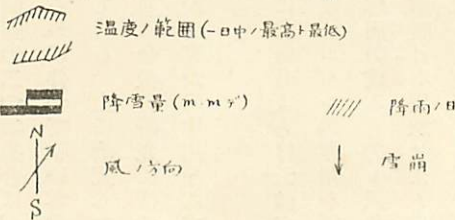 温度ノ範囲(一日中ノ最高ト最低)
降雪量(m.mデ)
降雨ノ日
N
風ノ方向
雪崩
S